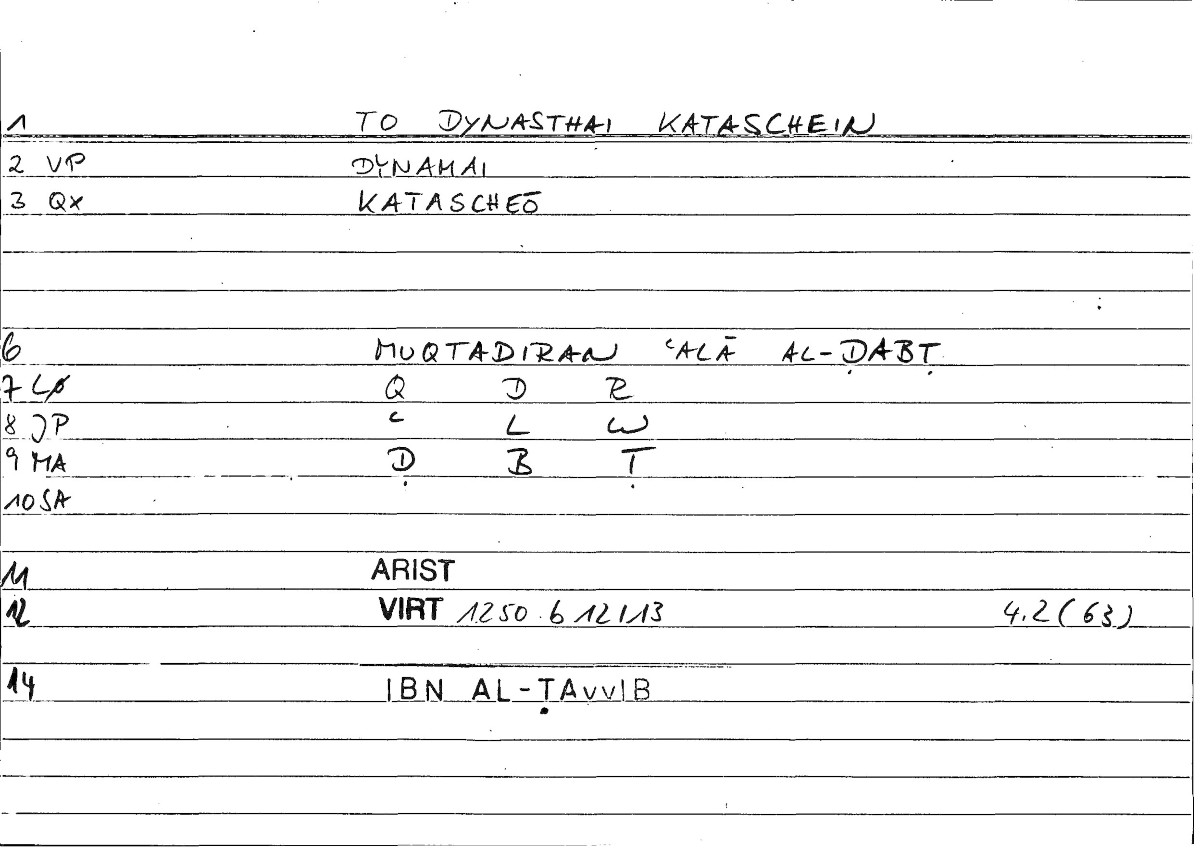 1 TO DYNASTHAI KATASCHEIN
2 VP DYNAMAI
3 QX KATASCHEŌ
6 MUQTADIRAN ʿALĀ AL-ḌABṬ
7 LØ Q D R
8 JP ʿ L W
9 MA Ḍ B Ṭ
10 SA
11 ARIST
12 VIRT 1250.6 12/13 4.2(63)
14 IBN AL-ṬAYYIB